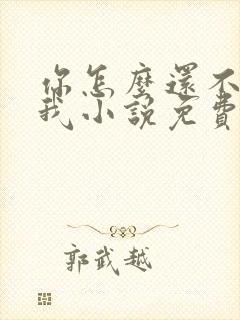 你怎麼還不
我小說免費
郭武越